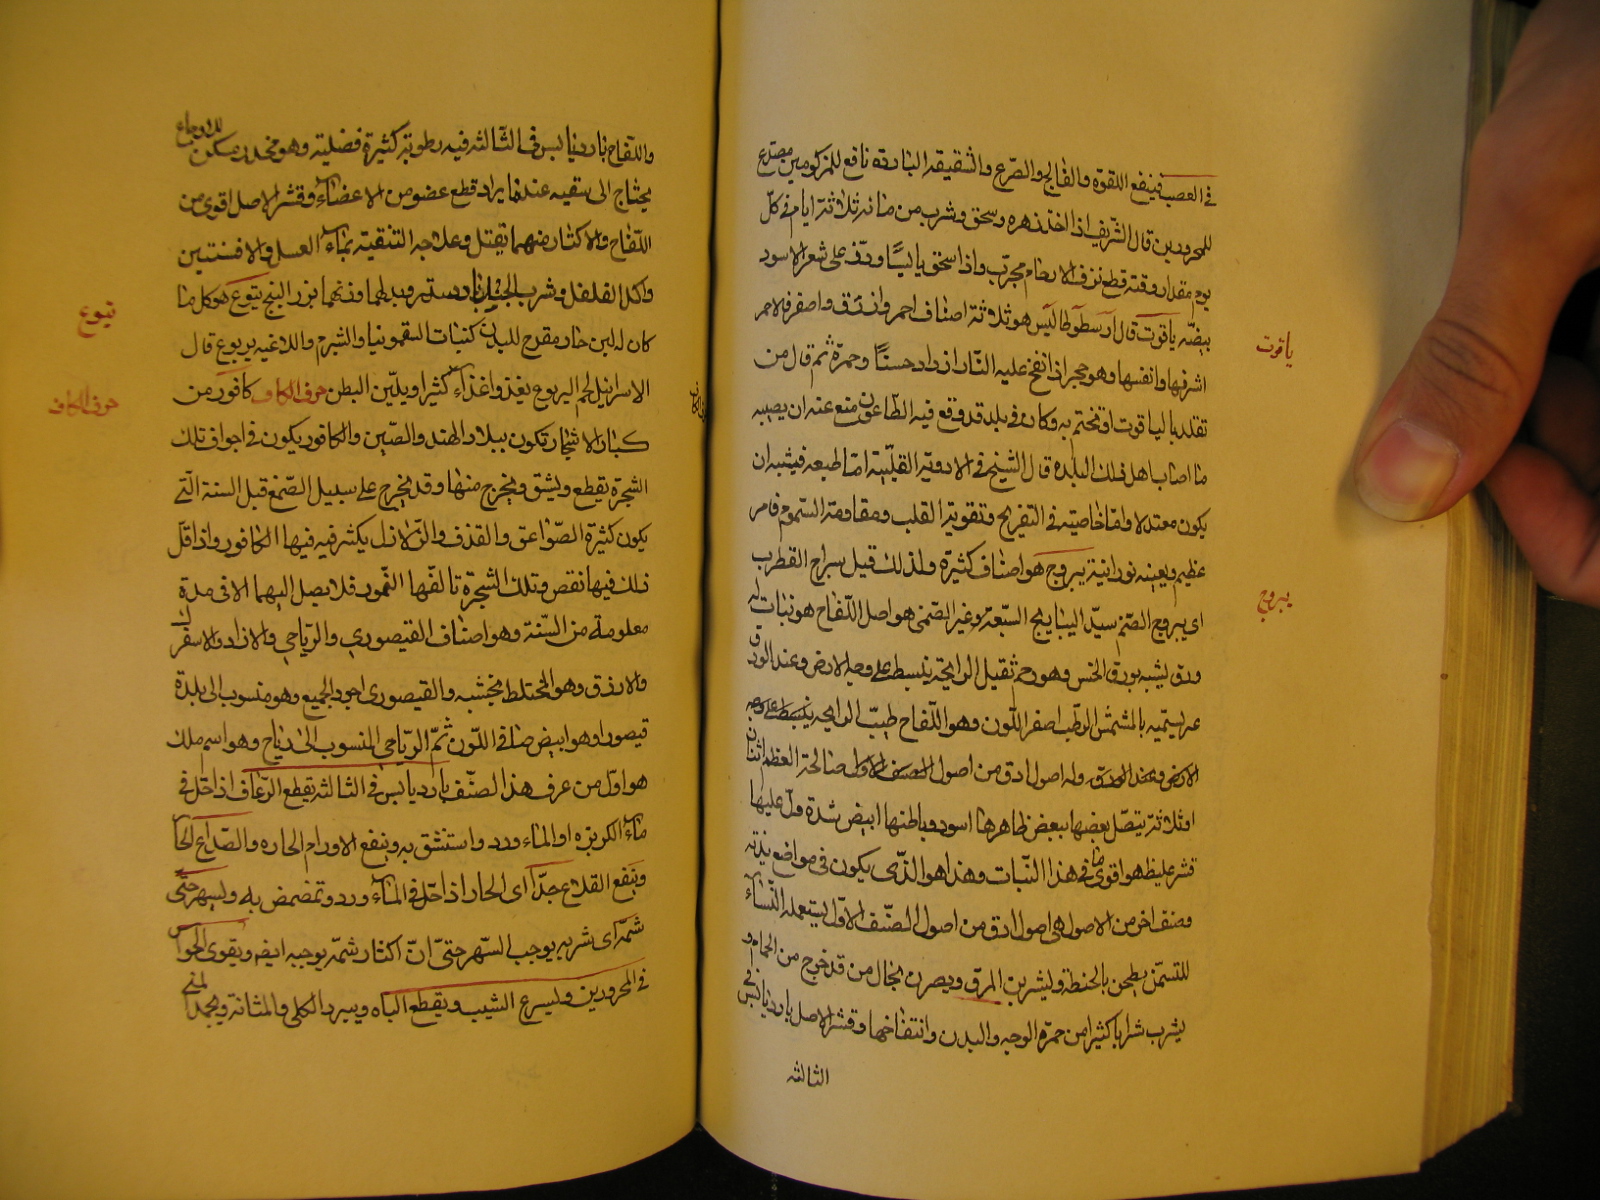 في العصب فينفع اللقوة والفالج والصرع والشقيقه الباردة نافع للمزكومين مصدع
للمحرورين قال الشريف اذا اخذ زهره وسحق وشرب من مائه ثلاثة ايام في كل
يوم مقدار وقته قطع نزف الارحام مجرب واذا سحق يابسًا وذر على شعر الاسود
يبيضه ياقوت قال ارسطوطاليس هو ثلاثة اصناف احمر وازرق واصفر فالاحمر
اشرفها وانفسها وهو حجر اذا نفخ عليه النار ازداد حسنًا وحمرة ثم قال من
تقلد بالياقوت او تختم به وكان في بلد قد وقع فيه الطاعون منع عنه ان يصيبه
ما اصاب اهل ذلك البلدة قال الشيخ في الادوية القلبية اما طبعه فيشبه ان
يكون معتدلا واما خاصيته في التفريح وتقوية القلب ومقاومة السموم فامر
عظيم ويعينه نورانية يبروج هو اصناف كثيرة ولذلك قيل سراج القطرب
اى يبروج الصنم سيد اليبابيج السبعة وغير الصنمى هو اصل اللفاح هو نبات له
ورق يشبه بورق الخس وهو رخم ثقيل الرايحة ينبسط على وجه الارض وعند الورق
ثمر يسميه بالمشمش الرطب اصفر اللون وهو اللفاح طيب الرايحه ينبسط على وجه
الارض وعند الورق وله اصول ادق من اصول الصنف الاول صالحة العظم اثنان
او ثلاثة يتصل بعضها ببعض ظاهرها اسود وباطنها ابيض شدة وعليها
قشر غليظ هو اقوى ما في هذا النبات وهذا هو الذى يكون في مواضع نزته
وصنف اخر من الاصول هى اصول ادق من اصول الصنف الاول يستعمله النساء
للتسمن يطحن بالحنطة ويشربن المرق ويصرن بحال من قد خرج من الحمام و
يشرب شرابا كثيرا من حمرة الوجه والبدن وانتفاخها وقشر الاصل بارد يابس في
الثالثه
ياقوت
يبروج
واللفاح بارد يابس في الثالثه فيه رطوبة كثيرة فضلية وهو مخدر مسكن للاوجاع
يحتاج الى سقيه عندما يراد قطع عضو من الاعضاء وقشر الاصل اقوى من
اللفاح والاكثار منهما يقتل وعلاجه التنقية بماء العسل والافسنتين
واكل الفلفل وشرب الجندبادستر وبدلهما وزنهما بزر البنج يتوع هو كل ما
كان له لبن حار مقرح للبدن كنبات السقمونيا والشبرم واللاغيه يربوع قال
الاسرائيل لحم اليربوع يغذو اغذاء كثيرا ويلين البطن حرف الكاف كافور من
كبار الاشجار تكون ببلاد الهند والصين والكافور يكون في اجواف تلك
الشجرة يقطع ويشق ويخرج منها وقد يخرج على سبيل الصمغ قبل السنة التي
يكون كثيرة الصواعق والقذف والزلازل يكثر فيه فيها الكافور واذا قل
ذلك فيها نقص وتلك الشجرة تالفها النمور فلا يصل اليها الا في مدة
معلومة من السنة وهو اصناف القيصورى والرياحي والازاد والاسفرك
والازرق وهو المختلط بخشبه والقيصورى اجود الجميع وهو منسوب الى بلدة
قيصور وهو ابيض صافى اللون ثم الرياحي المنسوب الى رياح وهو اسم ملك
هو اول من عرف هذا الصنف بارد يابس في الثالثه يقطع الرعاف اذا حل في
ماء الكزبره او الماء ورد واستنشق به وينفع الاورام الحاره والصداع الحا
وينفع القلاع جدًا اى الحار اذا حل في الماء ورد وتمضمض به ويسهر حتى
شمه اى شربه يوجب السهر حتى ان اكثار شمه يوجبه ايضا ويقوى الحواس
في المحرورين ويسرع الشيب ويقطع الباه ويبرد الكلى والمثانة ويجمد المنى
يتوع
حرف الكاف